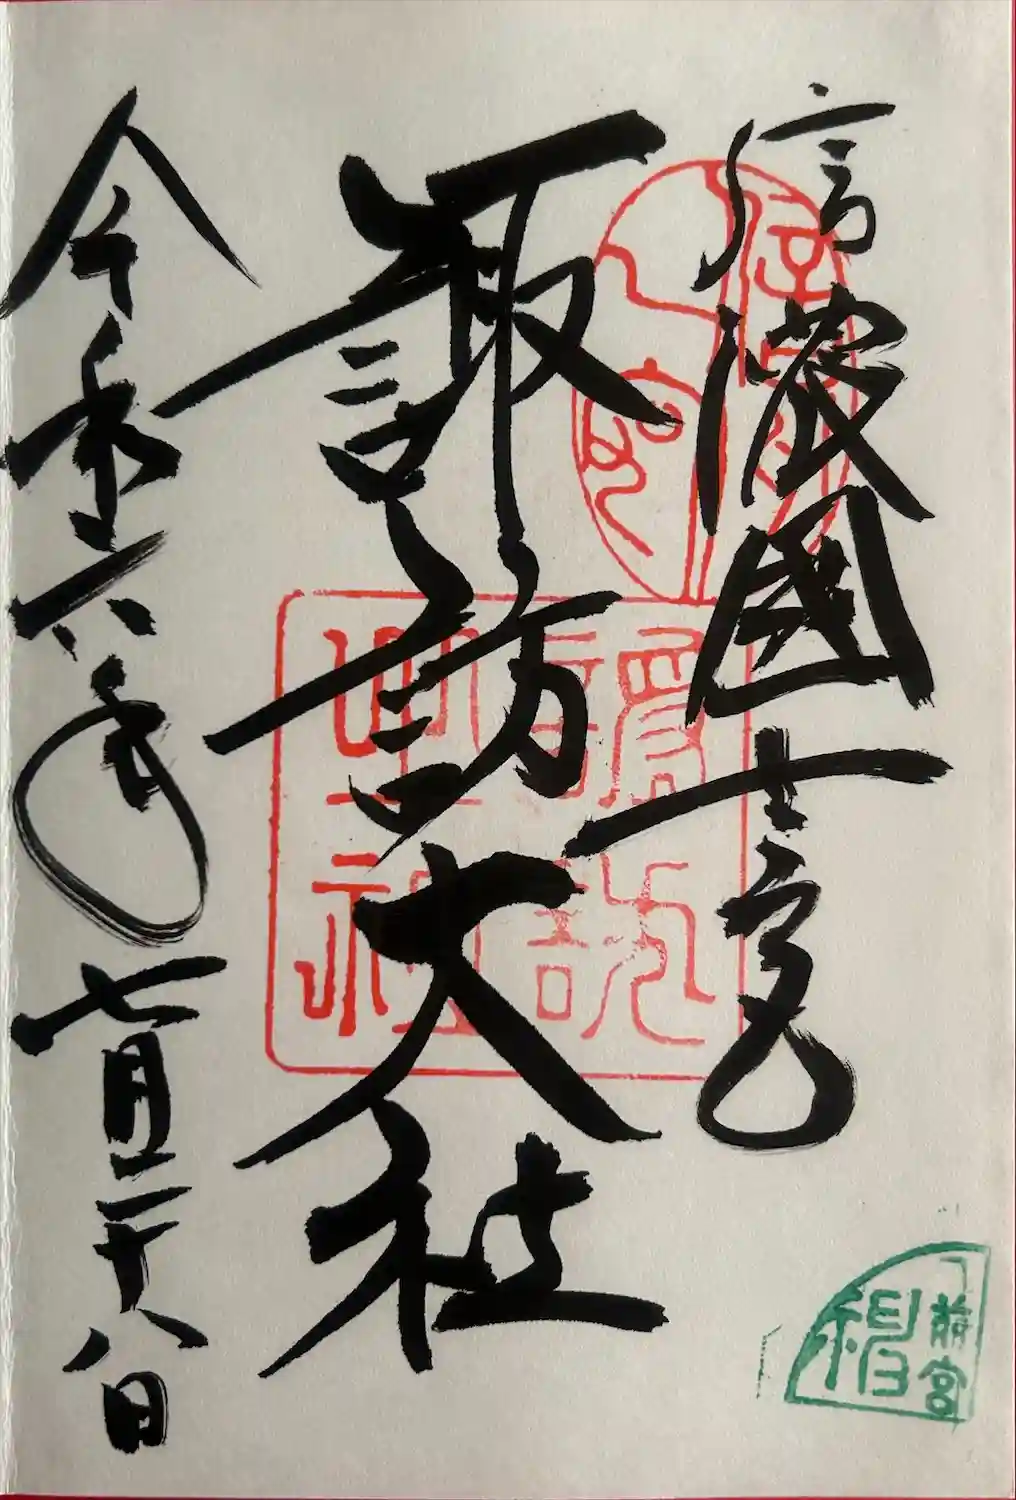 信濃國一之宮
諏訪大社
令和六年七月二十八日
前宮